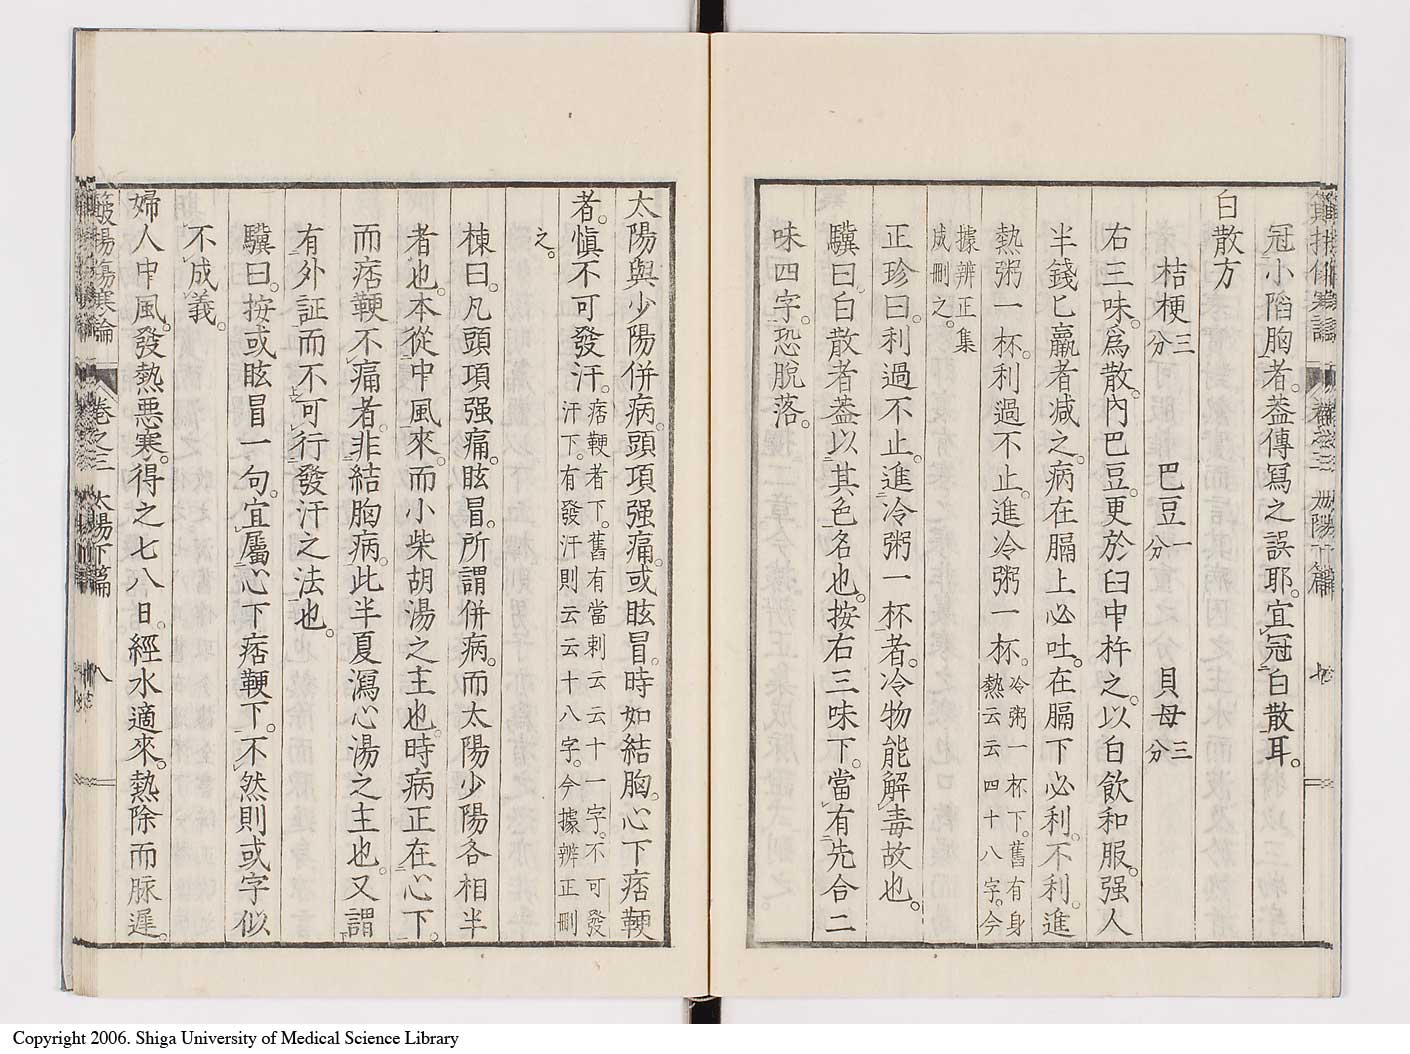 冠小陷胸者。蓋傳寫之誤耶。宜冠白散耳。
白散方
桔梗三分 巴豆一分 貝母三分
右三味。爲散。內巴豆。更於臼中杵之。以白飲和服。强人
半錢匕羸者減之。病在膈上必吐。在膈下必利。不利。進
熱粥一杯。利過不止。進冷粥一杯。冷粥一杯下。舊有身熱云云四十八字。今
據辨正集成刪之。
正珍曰。利過不止。進冷粥一杯者。冷物能解毒故也。
驥曰。白散者蓋以其色名也。按右三味下。當有先合二
味四字。恐脫落。
太陽與少陽併病。頭項强痛。或眩冒。時如結胸。心下痞鞕
者。愼不可發汗。痞鞕者下。舊有當刺云云十一字。不可發汗下。有發汗則云云十八字。今據辨正刪
之。
棟曰。凡頭項强痛。眩冒。所謂併病。而太陽少陽各相半
者也。本從中風來。而小柴胡湯之主也。時病正在心下。
而痞鞕。不痛者。非結胸病。此半夏瀉心湯之主也。又謂
有外証而不可行發汗之法也。
驥曰。按或眩冒一句。宜屬心下痞鞕下。不然則或字似
不成義。
婦人中風。發熱悪寒。得之七八日。經水適來。熱除而脈遲。
傷寒論 卷之三 太陽下篇 八
Copyright 2006. Shiga University of Medical Science Library